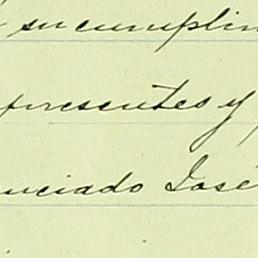 su cumplin
presentes y
nciado José